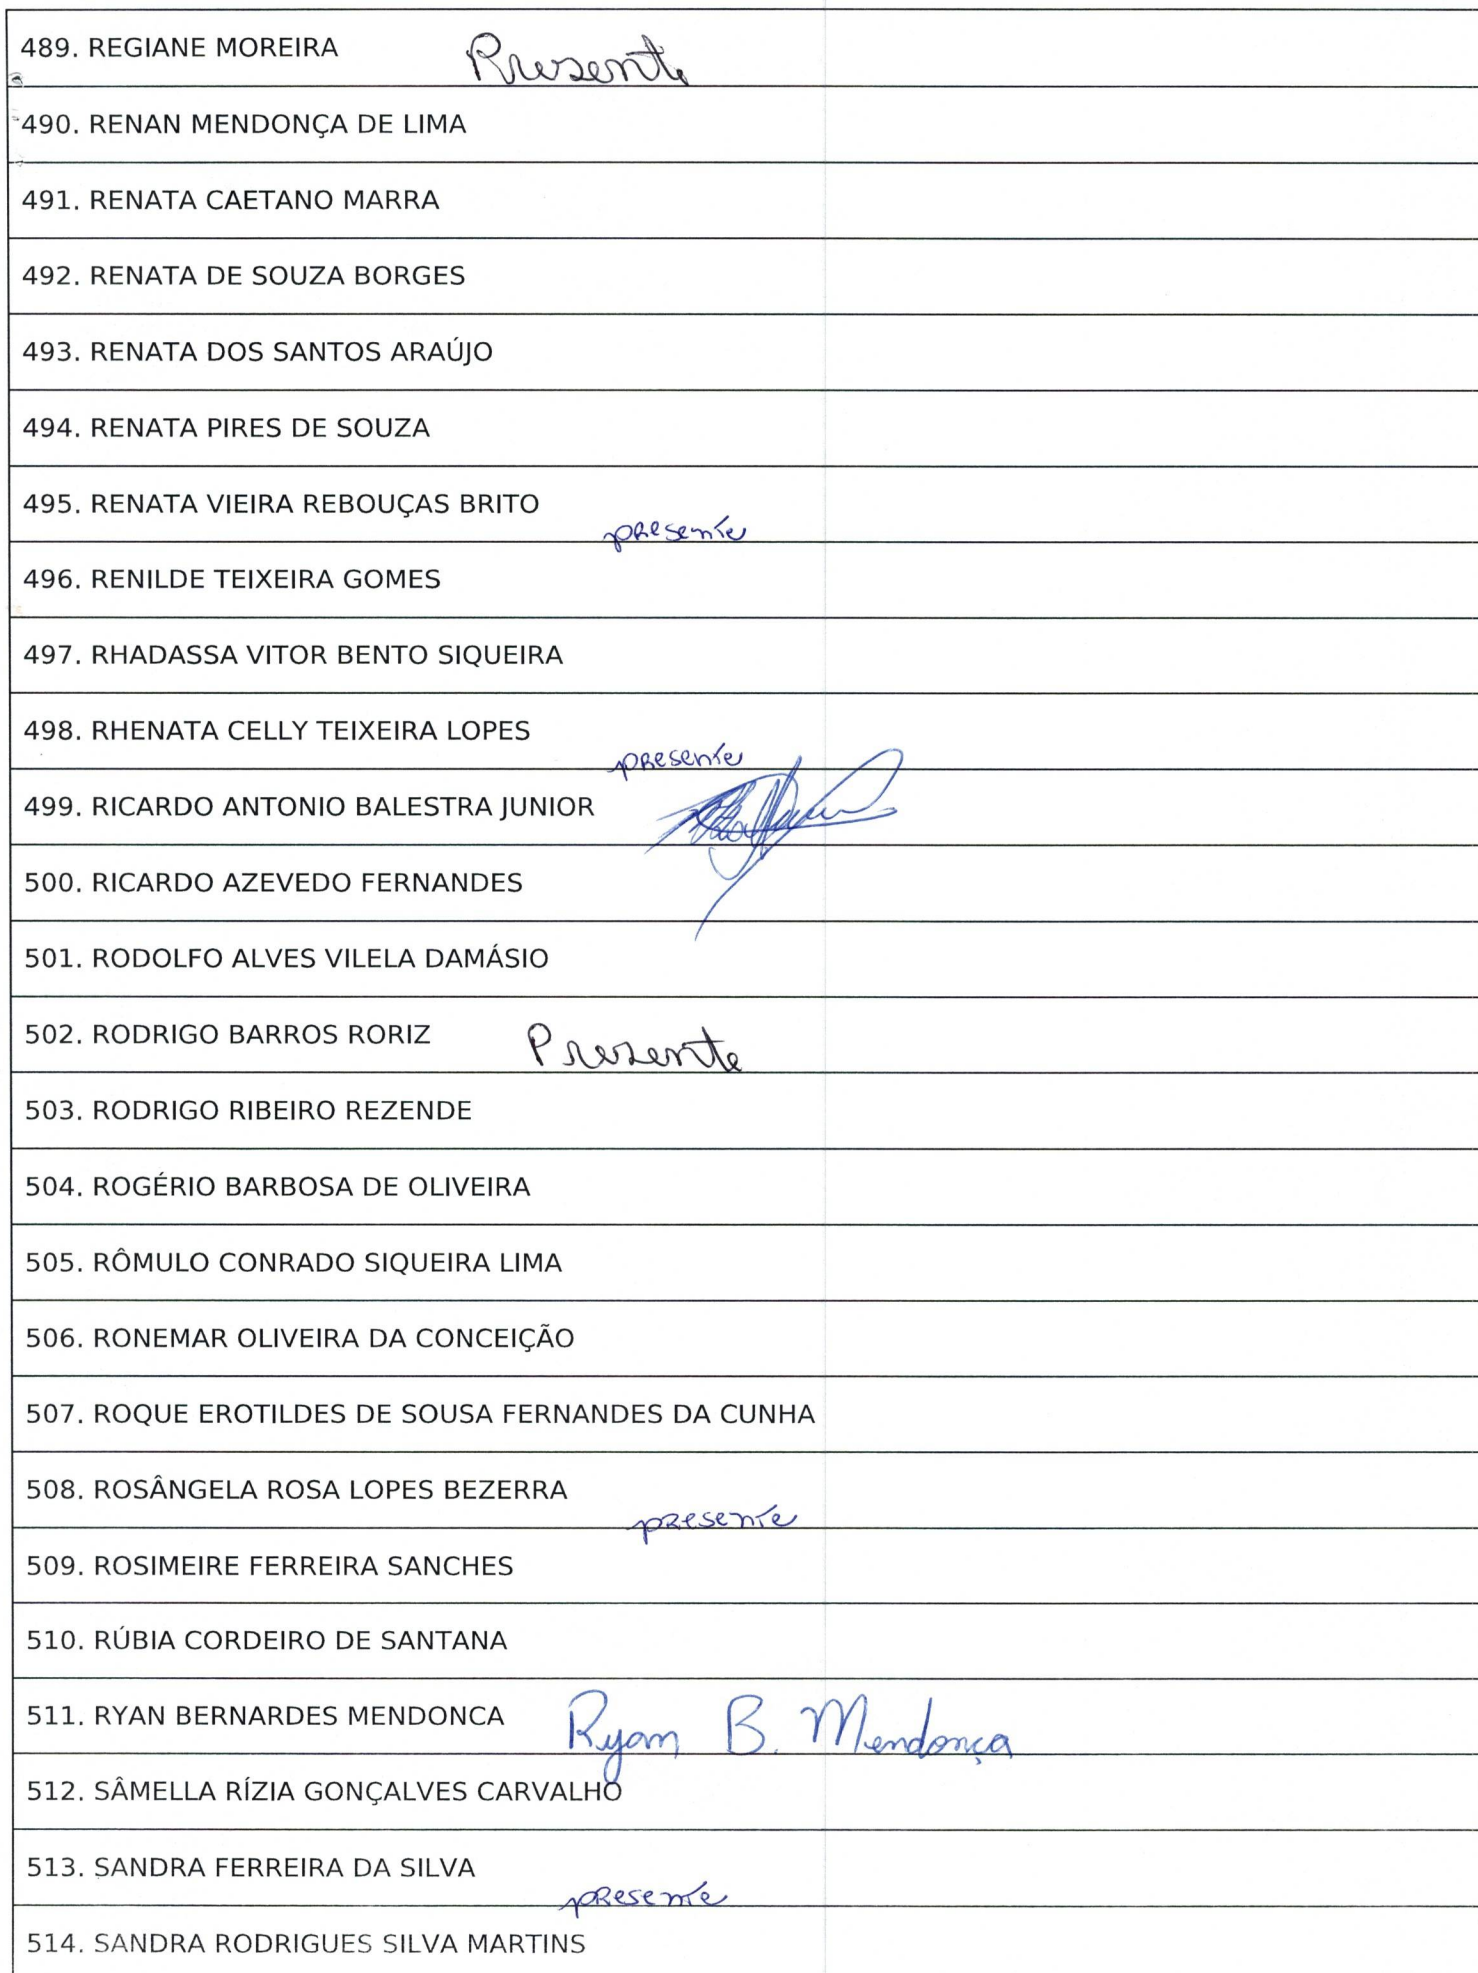 489. REGIANE MOREIRA Presente
490. RENAN MENDONÇA DE LIMA
491. RENATA CAETANO MARRA
492. RENATA DE SOUZA BORGES
493. RENATA DOS SANTOS ARAÚJO
494. RENATA PIRES DE SOUZA
495. RENATA VIEIRA REBOUÇAS BRITO
presente
496. RENILDE TEIXEIRA GOMES
497. RHADASSA VITOR BENTO SIQUEIRA
498. RHENATA CELLY TEIXEIRA LOPES
presente
499. RICARDO ANTONIO BALESTRA JUNIOR
500. RICARDO AZEVEDO FERNANDES
501. RODOLFO ALVES VILELA DAMÁSIO
502. RODRIGO BARROS RORIZ Presente
503. RODRIGO RIBEIRO REZENDE
504. ROGÉRIO BARBOSA DE OLIVEIRA
505. RÔMULO CONRADO SIQUEIRA LIMA
506. RONEMAR OLIVEIRA DA CONCEIÇÃO
507. ROQUE EROTILDES DE SOUSA FERNANDES DA CUNHA
508. ROSÂNGELA ROSA LOPES BEZERRA
presente
509. ROSIMEIRE FERREIRA SANCHES
510. RÚBIA CORDEIRO DE SANTANA
511. RYAN BERNARDES MENDONCA Ryan B. Mendonça
512. SÂMELLA RÍZIA GONÇALVES CARVALHO
513. SANDRA FERREIRA DA SILVA
presente
514. SANDRA RODRIGUES SILVA MARTINS